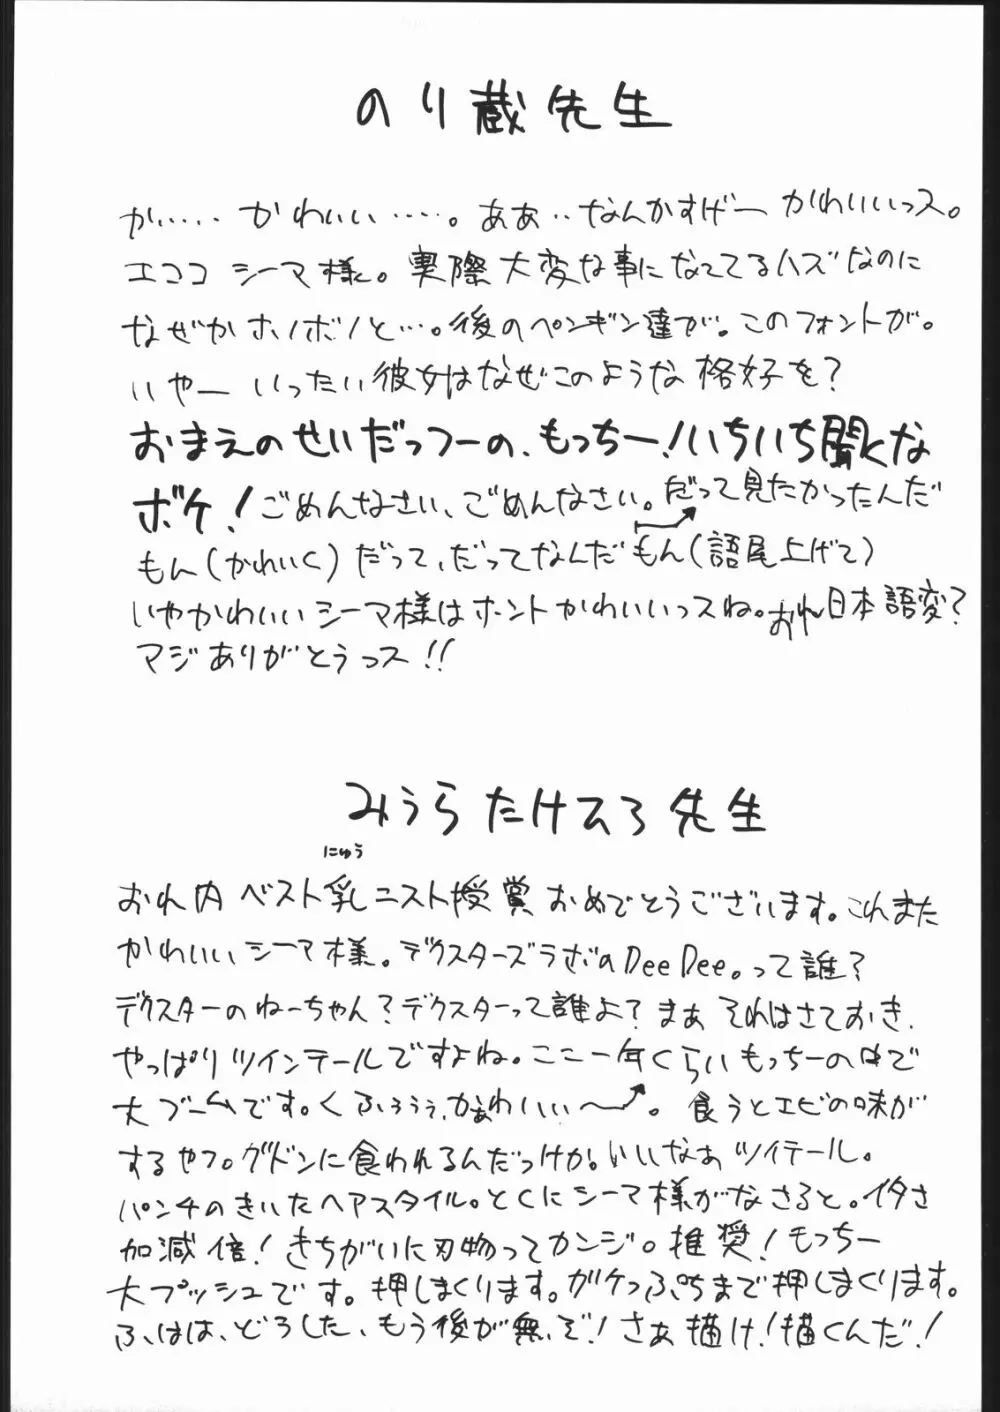 のり蔵先生
か‥‥‥かわいい‥‥‥。ああ‥なんかすげーかわいいっス。
エココ シーマ様。実際大変な事になってるハズなのに
なぜかホノボノと…。後のペンギン達が。このフォントが。
いやーいったい彼女はなぜこのような格好を?
おまえのせいだっつーの、もっちー!いちいち聞くな
ボケ!ごめんなさい、ごめんなさい。だって見たかったんだ
もん(かわいく)だって、だってなんだもん(語尾上げて)
いやかわいいシーマ様はホントかわいいっスね。おれ日本語変?
マジありがとうっス!!
みうらたけひろ先生
にゅう
おれ内ベスト乳ニスト授賞おめでとうございます。これまた
かわいいシーマ様。デクスターズラボのDee Dee。って誰?
デクスターのねーちゃん?デクスターって誰よ?まぁそれはさておき、
やっぱりツインテールですよね。ここ一年くらいもっちーの中で
大ブームです。くふぅぅぅ、かぁわいいぃ〜。食うとエビの味が
するヤフ。グドンに食われるんだっけか。いいなぁツイテール。
パンチのきいたヘアスタイル。とくにシーマ様がなさると。イタさ
加減倍!きちがいに刃物ってカンジ。推奨!もっちー
大プッシュです。押しまくります。ガケっぷちまで押しまくります。
ふ、はは、どうした、もう後が無いぞ!さぁ描け!描くんだ!